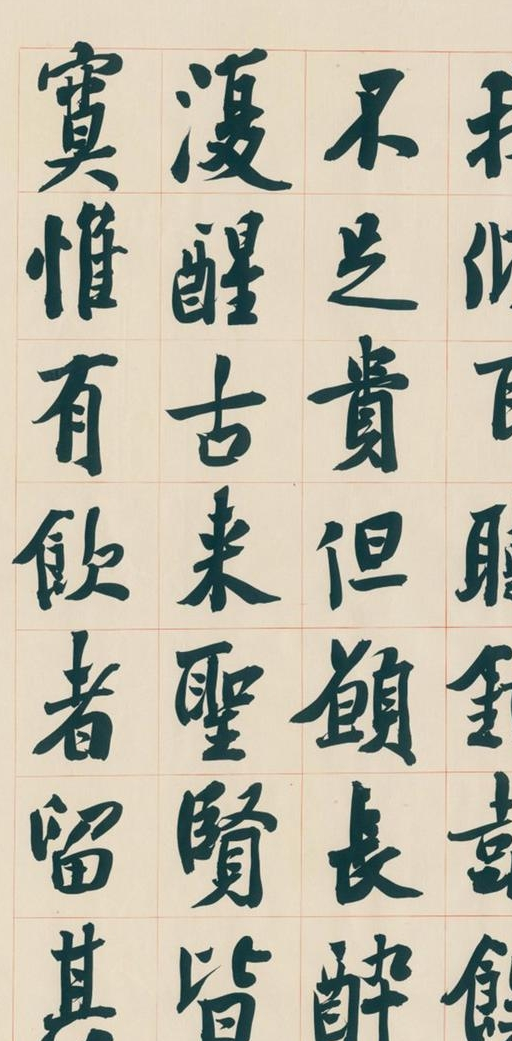 我傾耳聽鐘鼓饌
不足貴但願長醉
復醒古来聖賢皆
寞惟有飲者留其